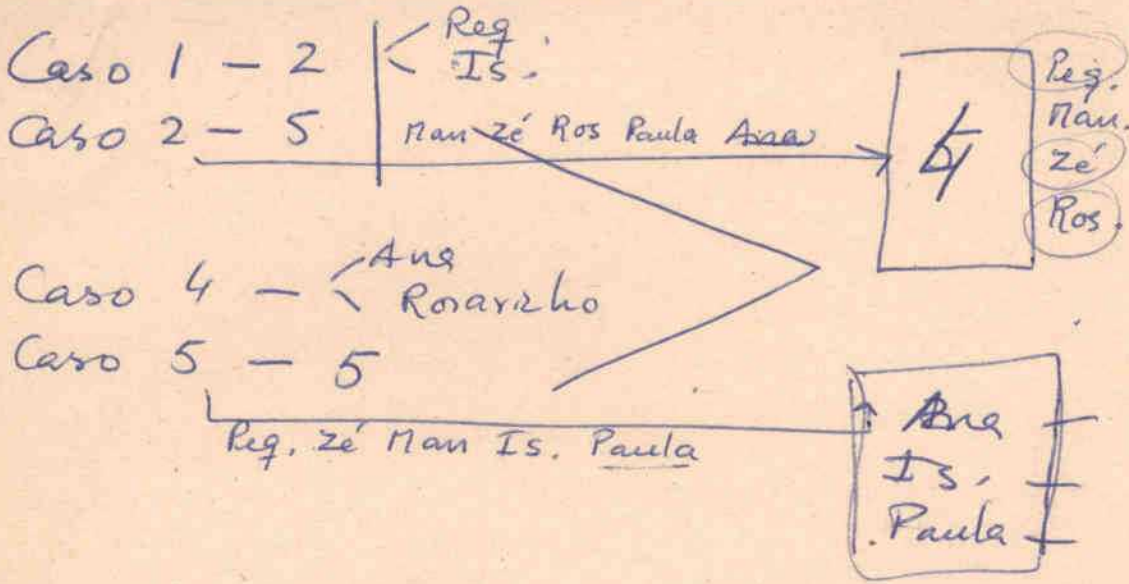 Caso 1 - 2 < Req
Is.
Caso 2 - 5 Man Zé Ros Paula Ana
4
Peq.
Man.
Zé
Ros.
Caso 4 - < Ana
Rosarinho
Caso 5 - 5
Peq. Zé Man Is. Paula
Ana
Is.
Paula